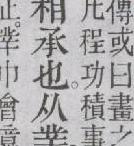 傳或曰畫之
凡程功積事
相承也。从丵
正。丵巾會意